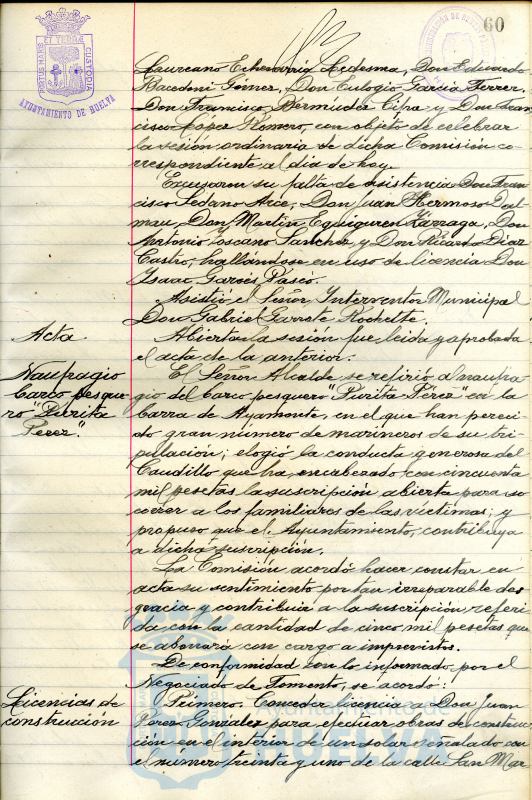 60
PORTUS MARIS ET TERRAE CUSTODIA
AYUNTAMIENTO DE HUELVA
Laureano Echevarría Ledesma, Don Eduardo
Bacedoni Gómez, Don Eulogio García Ferrer,
Don Francisco Bermúdez Cifra y Don Fran
cisco López Romero, con objeto de celebrar
la sesión ordinaria de dicha Comisión co-
rrespondiente al día de hoy.
Excusaron su falta de asistencia Don Fran
cisco Sedano Arce, Don Juan Hermoso Dal
mau, Don Martín Eguiguren Lárraga, Don
Antonio Toscano Sanchez y Don Ricardo Díaz
Castro, hallándose en uso de licencia Don
Isaac Garcés Pascó.
Asistió el Señor Interventor Municipal
Don Gabriel Garrote Rochette.
Acta
Abierta la sesión fué leida y aprobada
el acta de la anterior.
Naufragio
barco pesque-
ro "Piorita
Perez".
El Señor Alcalde se refirió al naufra
gio del barco pesquero "Piorita Pérez" en la
barra de Ayamonte, en el que han pereci
do gran número de marineros de su tri-
pulación; elogió la conducta generosa del
Caudillo que ha encabezado con cincuenta
mil pesetas la suscripción abierta para so
correr a los familiares de las víctimas; y
propuso que el Ayuntamiento contribuya
a dicha suscripción.
La Comisión acordó hacer constar en
acta su sentimiento por tan irreparable des
gracia y contribuir a la suscripción referi
da con la cantidad de cinco mil pesetas que
se abonará con cargo a imprevistos.
De conformidad con lo informado por el
Negociado de Fomento, se acordó:
Licencias de
construcción
Primero. Conceder licencia a Don Juan
Pérez González para efectuar obras de construc
ción en el interior de un solar señalado con
el número treinta y uno de la calle San Mar
Ayuntamiento de
HUELVA